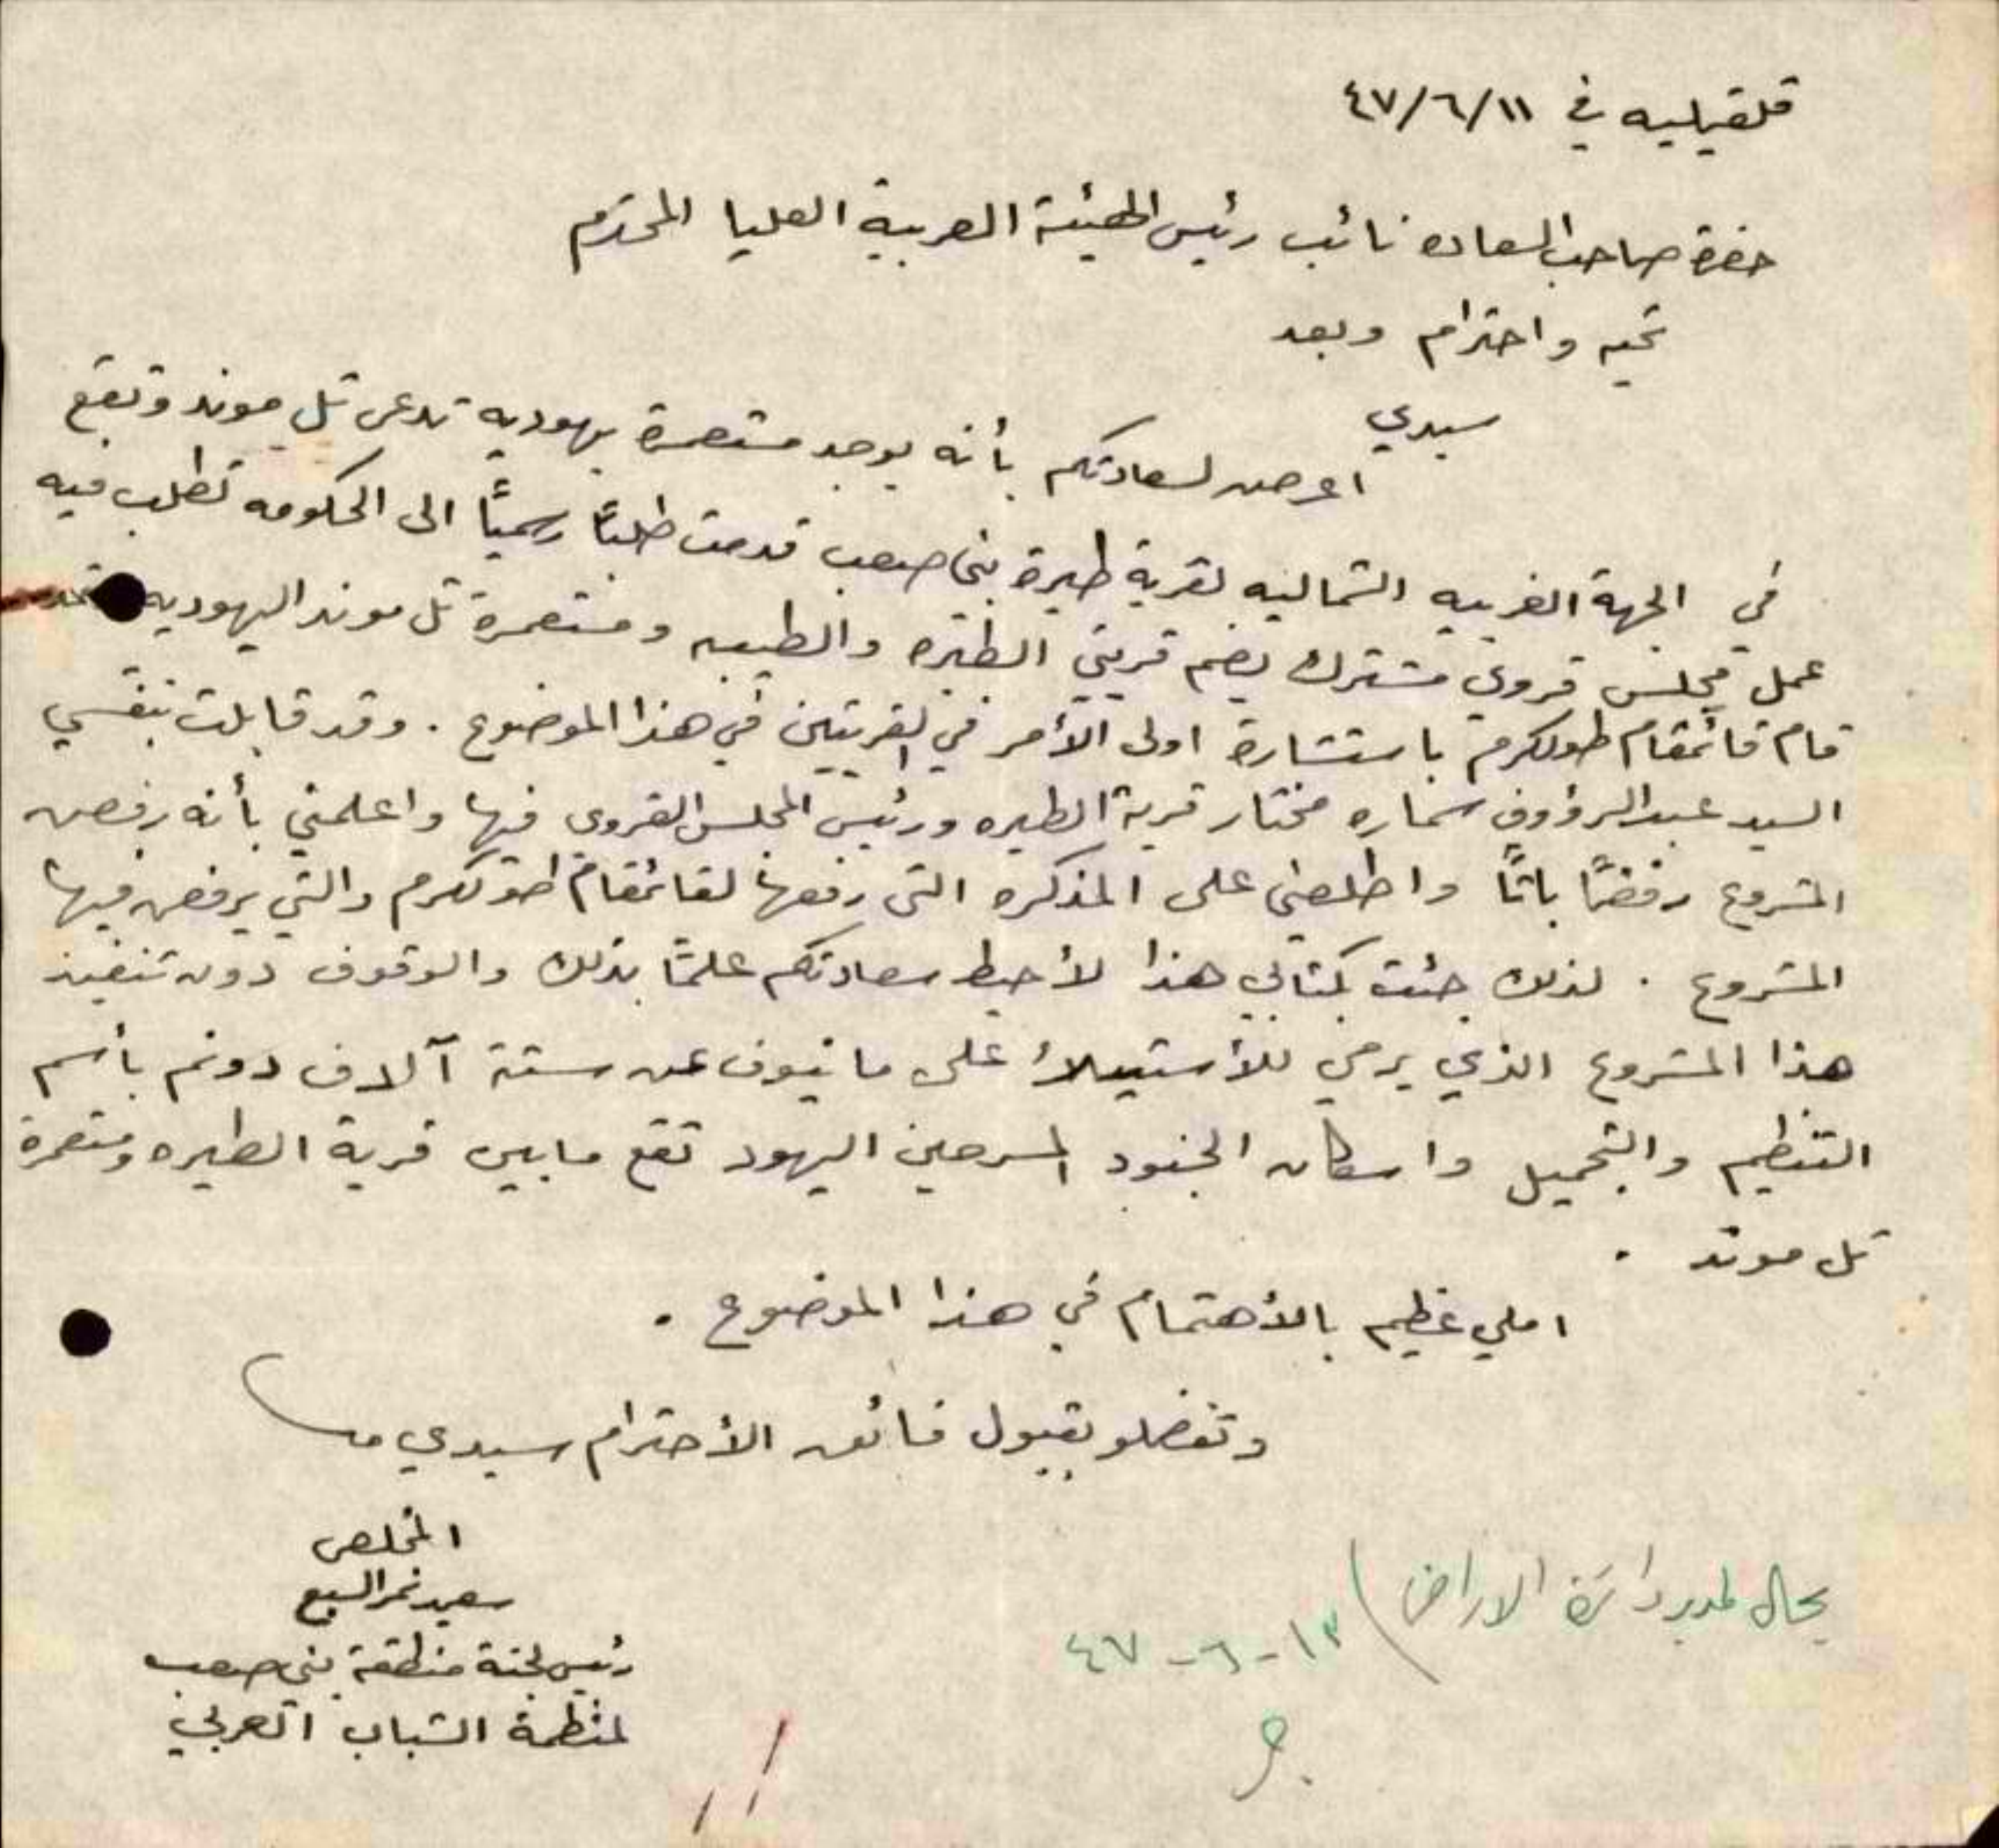 قلقيليه في ١١/٦/٤٧
حضرة صاحب السعاده نائب رئيس الهيئة العربية العليا المحترم
تحيه واحترام وبعد
سيدي
اعرض لسعادتكم بأنه يوجد مستعمرة يهوديه تدعى تل موند وتقع
في الجهة الغربيه الشماليه لقرية طيرة بني صعب قدمت طلبًا رسميًا الى الحكومه تطلب فيه
عمل مجلس قروي مشترك يضم قريتي الطيره والطيبه ومستعمرة تل موند اليهوديه
قام قائمقام طولكرم باستشارة اولى الأمر في القريتين في هذا الموضوع . وقد قابلت بنفسي
السيد عبد الرؤوف سماره مختار قرية الطيره ورئيس المجلس القروي فيها واعلمني بأنه رفض
المشروع رفضًا باتًا واطلعني على المذكره التي رفعها لقائمقام طولكرم والتي يرفض فيها
المشروع . لذلك جئت بكتابي هذا لأحيط سعادتكم علمًا بذلك والوقوف دون تنفيذ
هذا المشروع الذي يرمي للأستيلاء على ما نيوف عن ستة آلاف دونم بأسم
التنظيم والتجميل واسكان الجنود المسرحين اليهود تقع ما بين قرية الطيره ومستعمرة
تل موند .
املي عظيم بالأهتمام في هذا الموضوع .
وتفضلو بقبول فائق الأحترام سيدي
المخلص
سعيد نمر السبع
رئيس لجنة منطقة بني صعب
لمنظمة الشباب العربي
يحال لمدير دائرة الاراضي
١٣-٦-٤٧